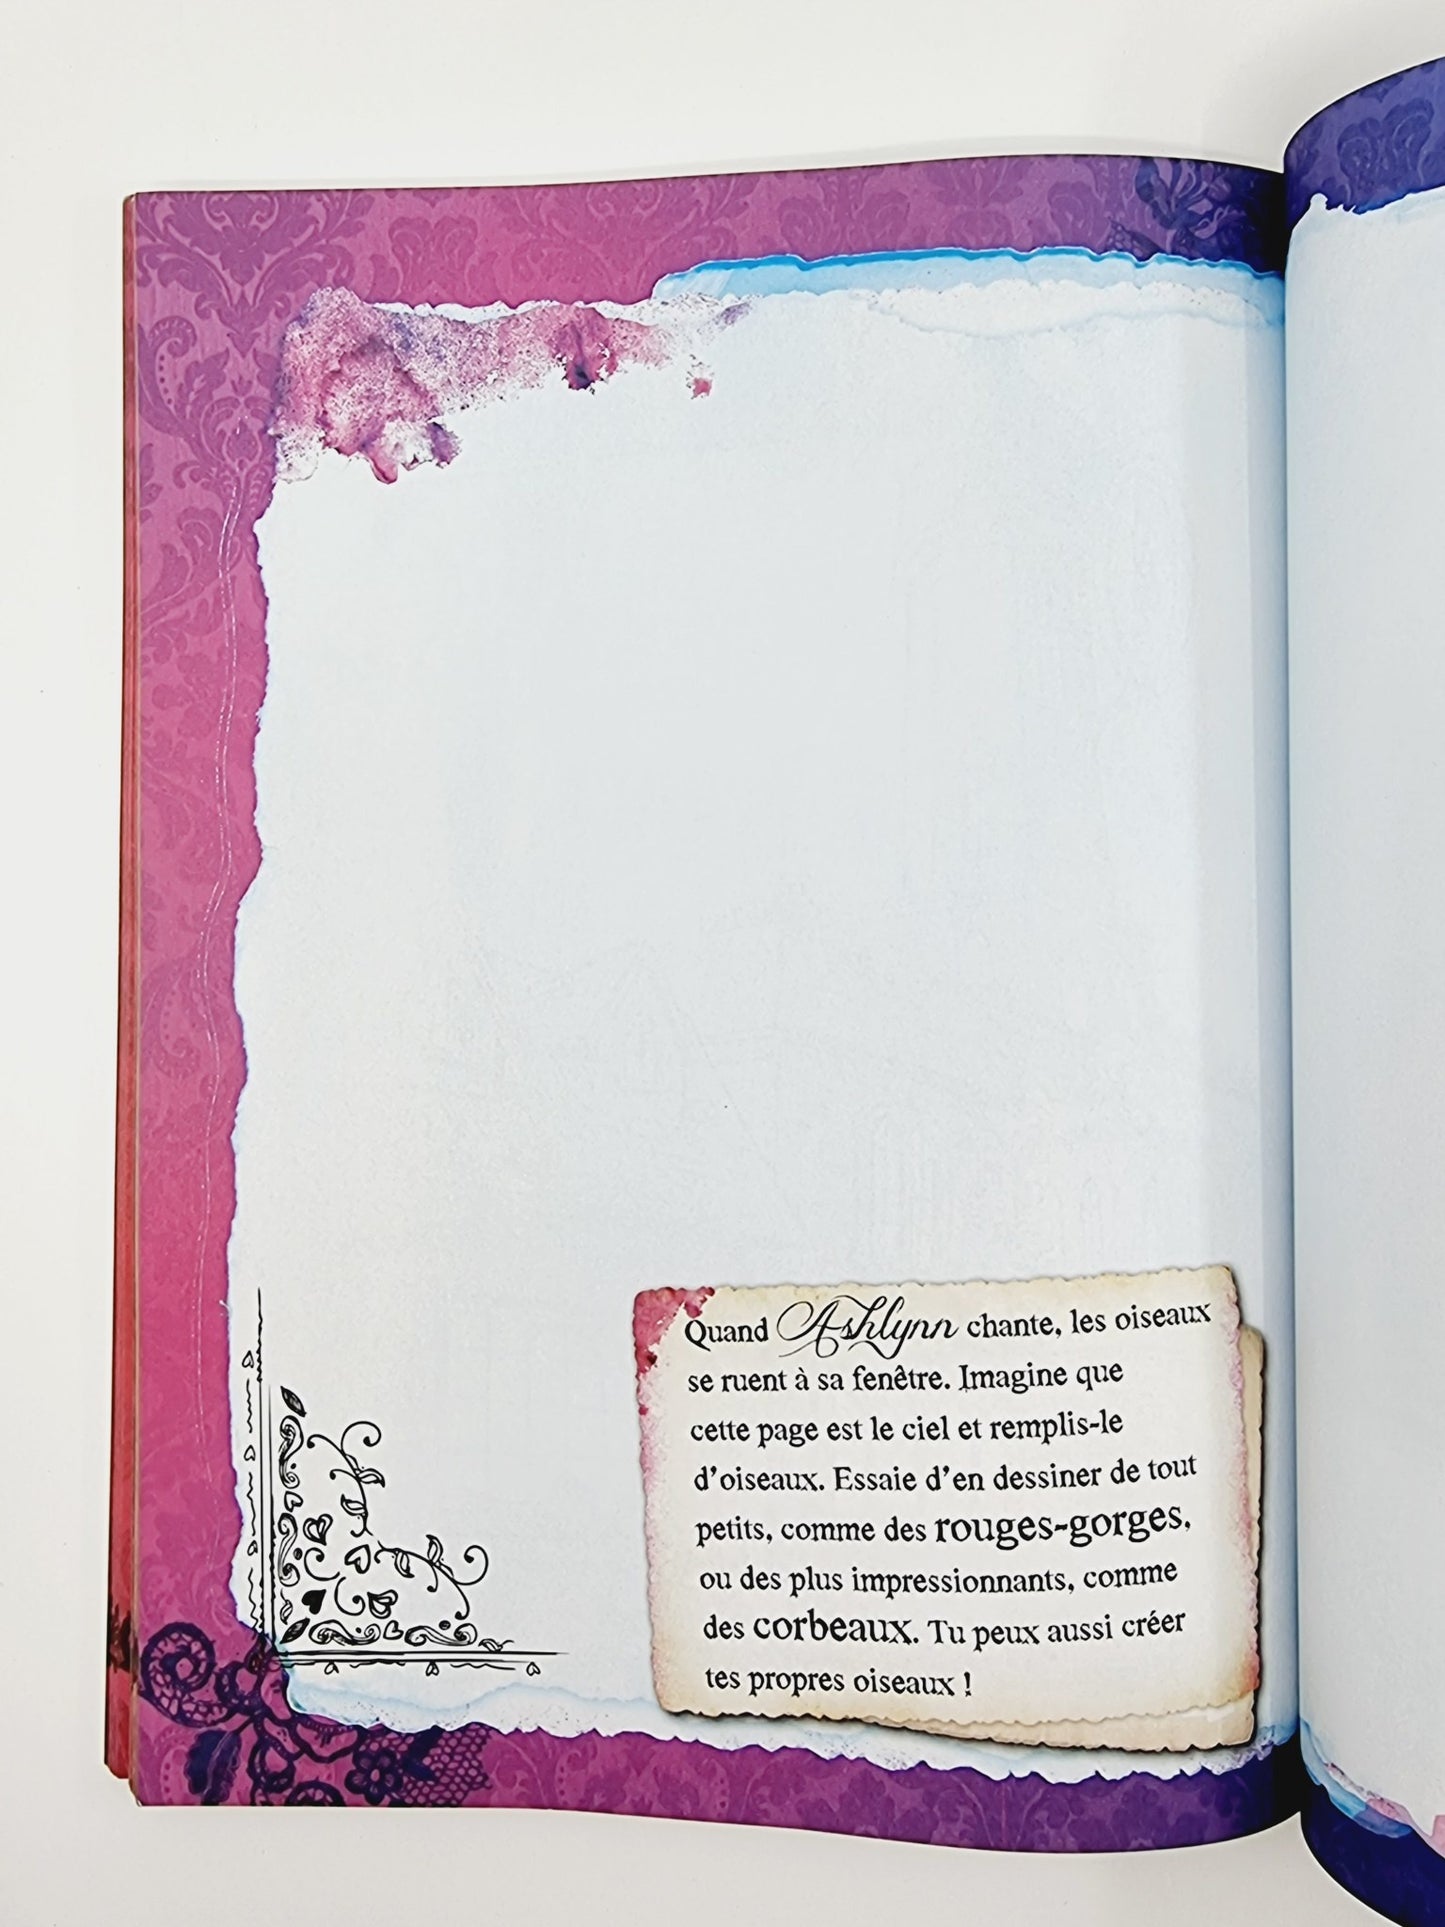 Quand Ashlynn chante, les oiseaux
se ruent à sa fenêtre. Imagine que
cette page est le ciel et remplis-le
d'oiseaux. Essaie d'en dessiner de tout
petits, comme des rouges-gorges,
ou des plus impressionnants, comme
des corbeaux. Tu peux aussi créer
tes propres oiseaux !